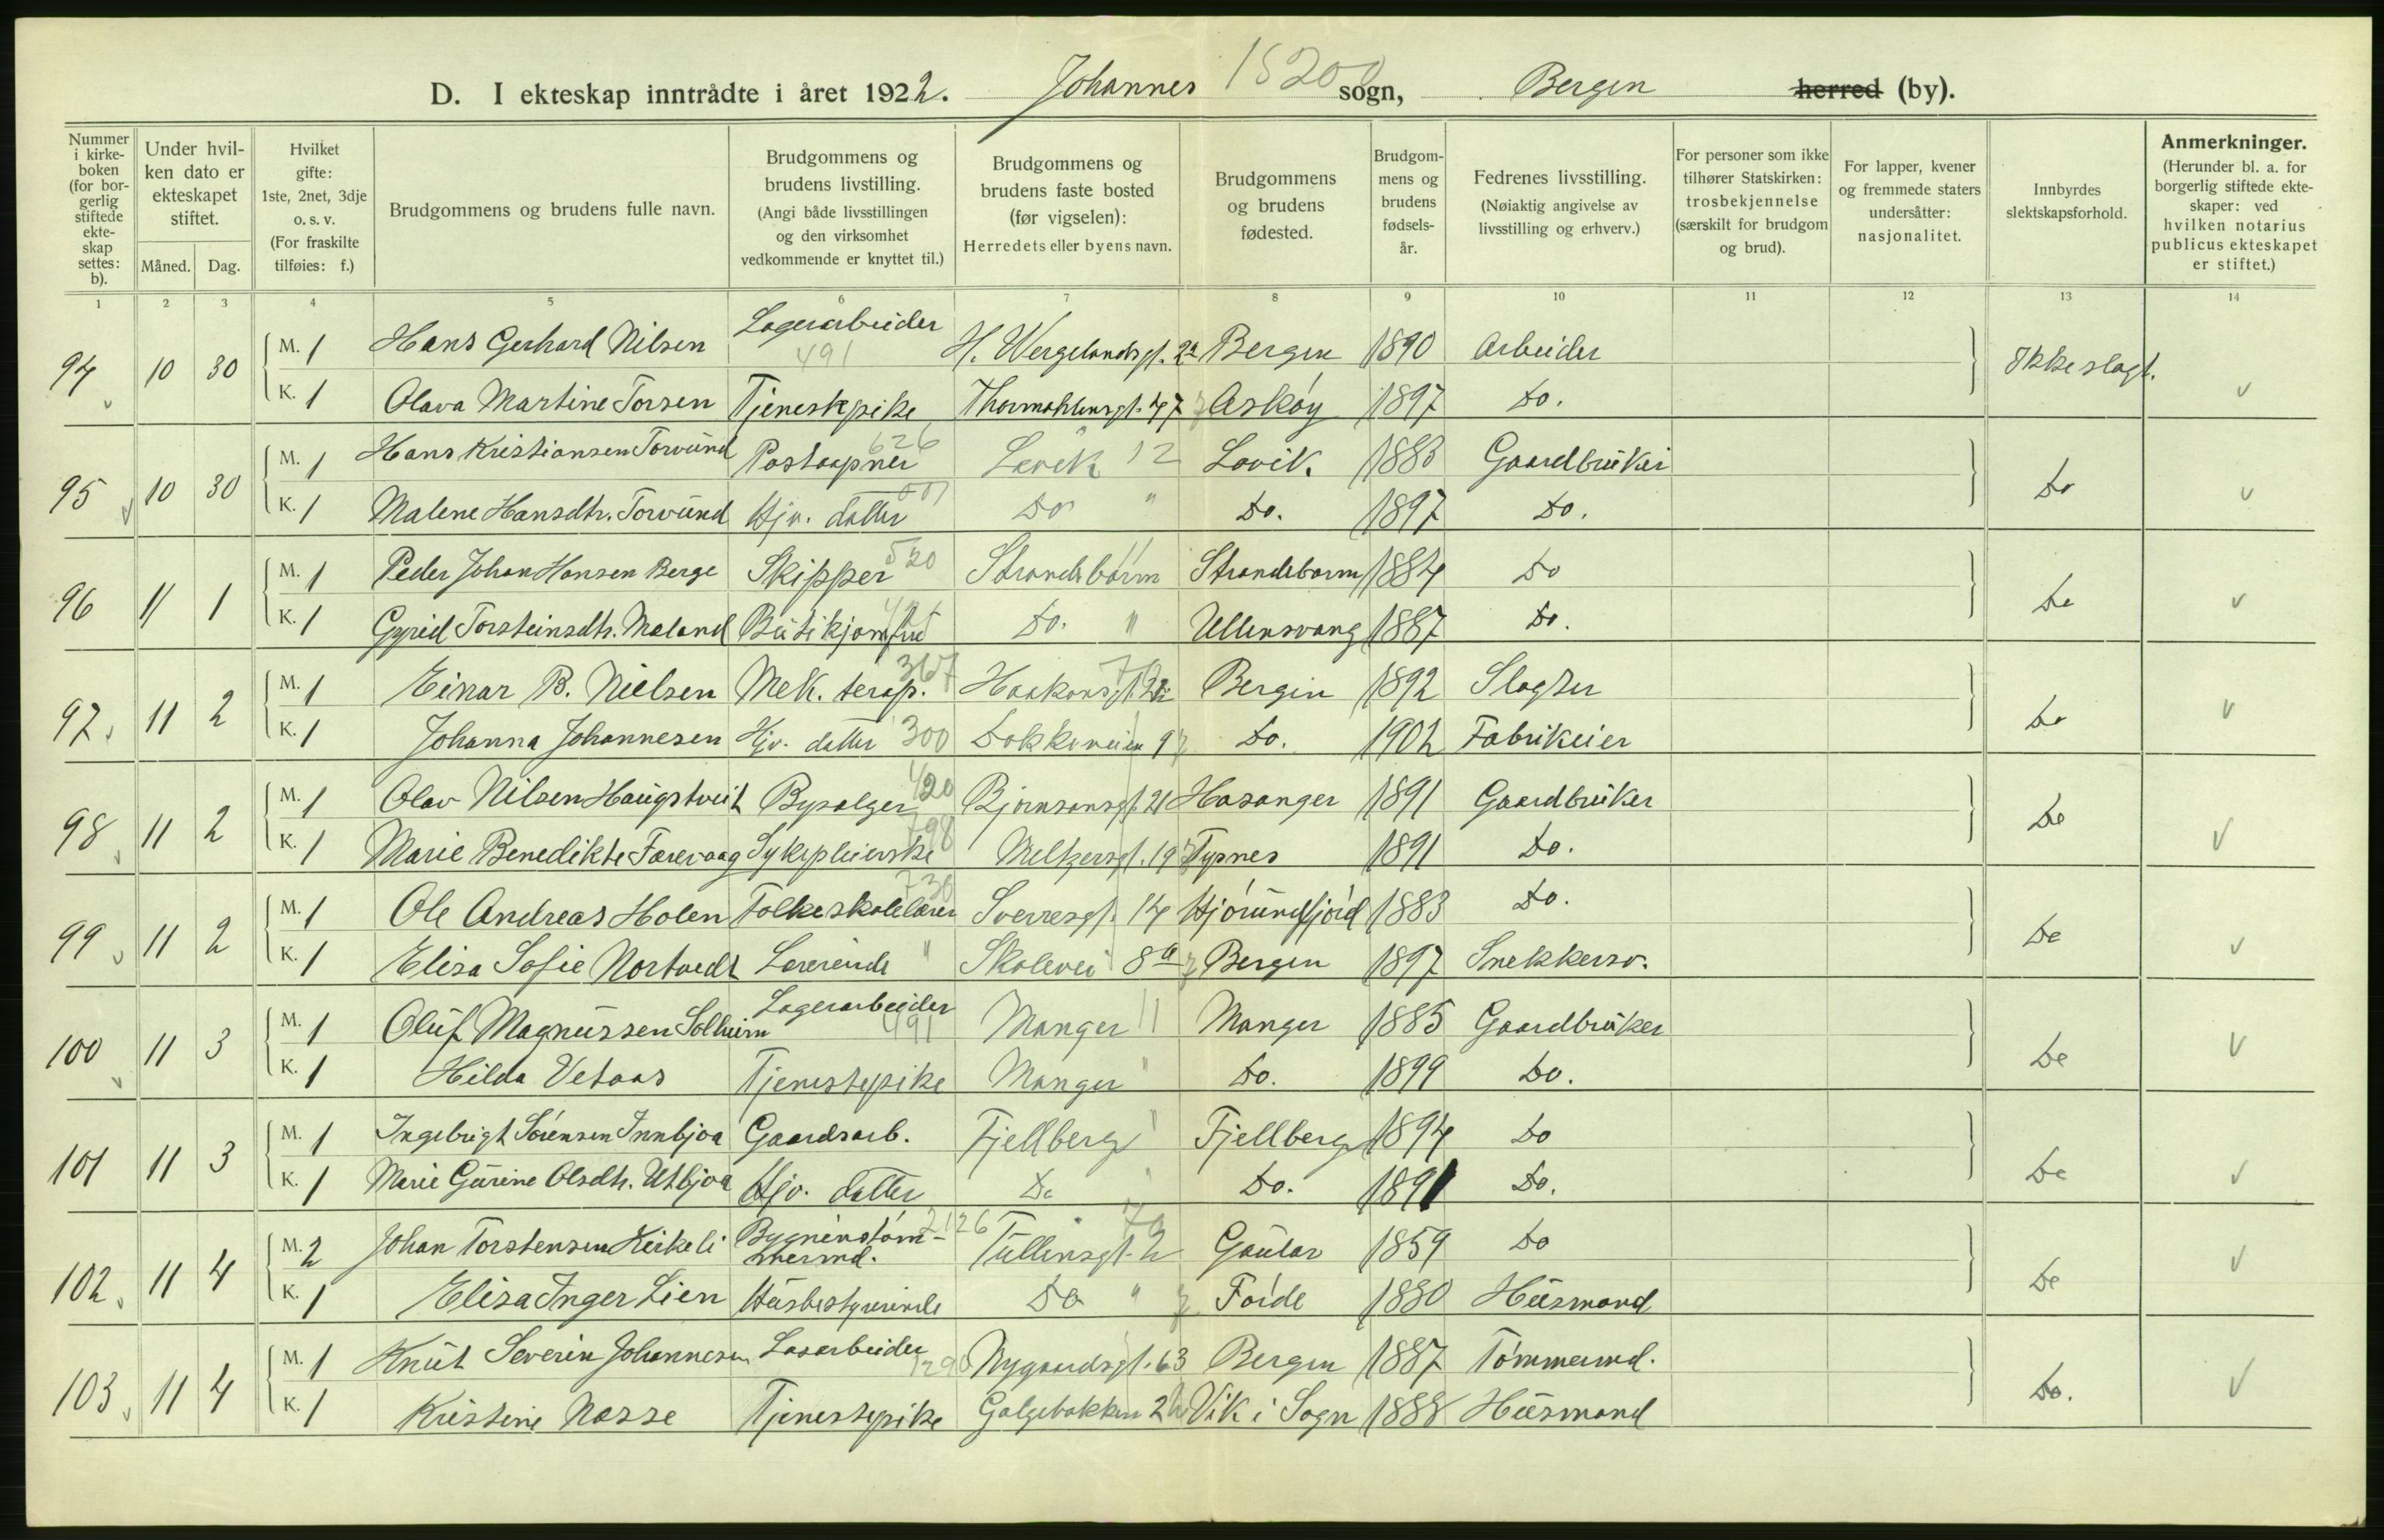 D. I ekteskap inntrådte i året 1922. Johannes sogn, Bergen herred (by).
Nummer i kirkeboken (for borgerlig stiftede ekteskap settes: b).
Under hvilken dato er ekteskapet stiftet.
Måned. Dag.
Hvilket gifte: 1ste, 2net, 3dje o. s. v. (For fraskilte tilføies: f.)
Brudgommens og brudens fulle navn.
Brudgommens og brudens livstilling. (Angi både livsstillingen og den virksomhet vedkommende er knyttet til.)
Brudgommens og brudens faste bosted (før vigselen): Herredets eller byens navn.
Brudgommens og brudens fødested.
Brudgommens og brudens fødselsår.
Fedrenes livsstilling. (Nøiaktig angivelse av livsstilling og erhverv.)
For personer som ikke tilhører Statskirken: trosbekjennelse (særskilt for brudgom og brud).
For lapper, kvener og fremmede staters undersåtter: nasjonalitet.
Innbyrdes slektskapsforhold.
Anmerkninger. (Herunder bl. a. for borgerlig stiftede ekteskaper: ved hvilken notarius publicus ekteskapet er stiftet.)
1 2 3 4 5 6 7 8 9 10 11 12 13 14
94 10 30 M. 1 Hans Gerhard Nilsen Lagerarbeider 491 H. Wergelandsgt. 2a Bergen 1890 Arbeider Ikke slagt.
K. 1 Olava Martine Torsen Tjenestepike Thormøhlensgt. 47 Askøy 1897 Do.
95 10 30 M. 1 Hans Kristiansen Torvund Postaapner 626 Lavik 12 Lavik 1883 Gaardbruker Do
K. 1 Malene Hansdtr. Torvund Hjv. datter Do " Do. 1897 Do.
96 11 1 M. 1 Peder Johan Hansen Berge Skipper 520 Strandebarm 11 Strandebarm 1884 Do Do
K. 1 Gyrid Torsteinsdtr. Maland Butikjomfru Do. " Ullensvang 1887 Do.
97 11 2 M. 1 Einar B. Nielsen Mek. terap. 367 Haakonsgt. Bergen 1892 Slagter Do
K. 1 Johanna Johannesen Hjv. datter 300 Dokkeveien 9 Do. 1902 Fabrikeier
98 11 2 M. 1 Olav Nilsen Haugstveit Bysalger 420 Bjørnsonsgt. 21 Hosanger 1891 Gaardbruker Do
K. 1 Marie Benedikte Færevaag Sykepleierske 798 Meltzersgt. 19 Tysnes 1891 Do.
99 11 2 M. 1 Ole Andreas Holen Folkeskolelærer 730 Sverresgt. 14 Hjørundfjord 1883 Do. Do
K. 1 Elisa Sofie Nortvedt Lærerinde " Skolevei 8a Bergen 1897 Snekkersv.
100 11 3 M. 1 Oluf Magnussen Solheim Lagerarbeider 491 Manger 11 Manger 1885 Gaardbruker Do
K. 1 Hilda Vetaas Tjenestepike Manger " Do. 1899 Do.
101 11 3 M. 1 Ingebrigt Sørensen Innbjoa Gaardsarb. Fjellberg " Fjellberg 1894 Do Do
K. 1 Marie Gurine Olsdtr. Utbjoa Hjv. datter Do " Do. 1891 Do.
102 11 4 M. 2 Johan Torstensen Kirkeli Bygnenstømmermd. 2126 Tullinsgt. 2 Gaular 1859 Do Do
K. 1 Elisa Inger Lien Husbestyrerinde Do " Førde 1880 Husmand
103 11 4 M. 1 Knut Severin Johannesen Løsarbeider Nygaardsgt. 63 Bergen 1887 Tømmermd. Do.
K. 1 Kristine Nasse Tjenestepike Galgebakken Vik i Sogn 1888 Husmand